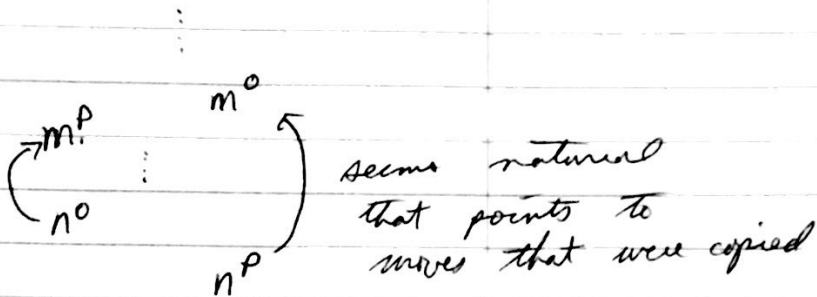 m^O
m^P
n^O
seems natural
that points to
moves that were copied
n^P